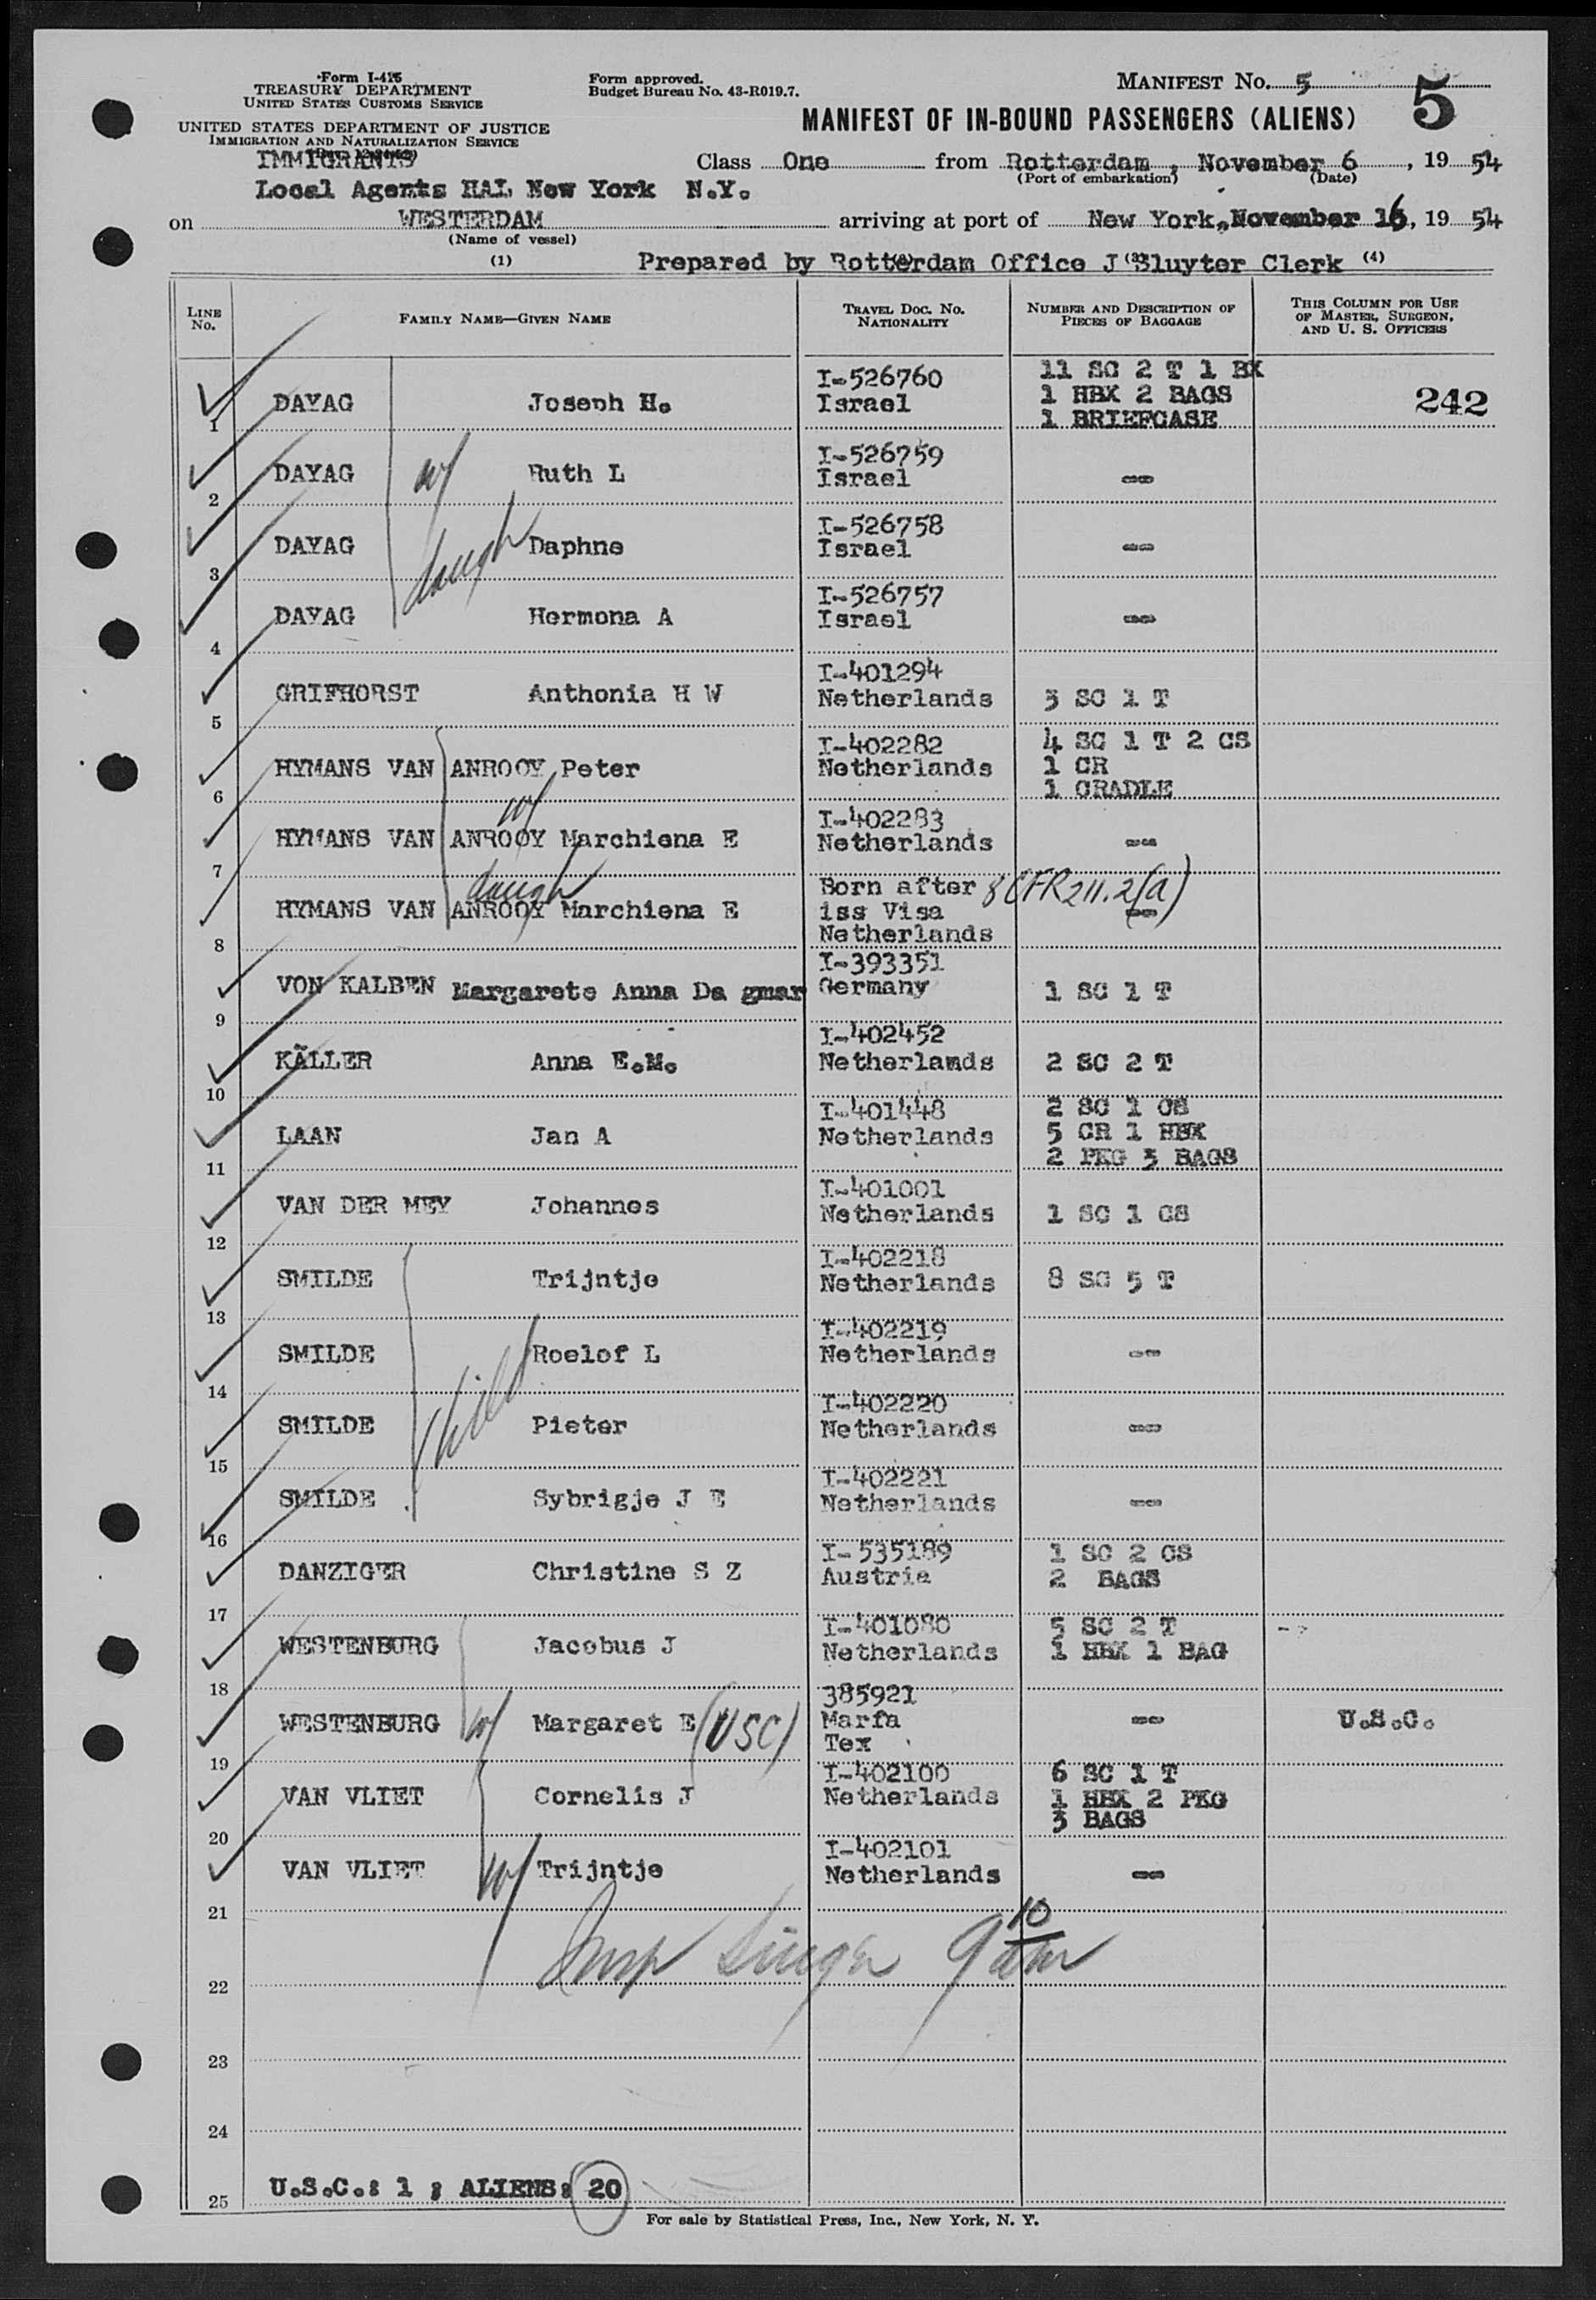 Form I-415
TREASURY DEPARTMENT
UNITED STATES CUSTOMS SERVICE
UNITED STATES DEPARTMENT OF JUSTICE
IMMIGRATION AND NATURALIZATION SERVICE
Form approved.
Budget Bureau No. 43-R019.7.
MANIFEST No. 5
5
MANIFEST OF IN-BOUND PASSENGERS (ALIENS)
IMMIGRANTS
Class One from Rotterdam, November 6, 1954
(Port of embarkation) (Date)
Local Agents HAL New York N.Y.
on WESTERDAM arriving at port of New York, November 16, 1954
(Name of vessel)
(1) (2) (3) (4)
Prepared by Rotterdam Office J Sluyter Clerk
LINE No. FAMILY NAME—GIVEN NAME TRAVEL DOC. No. NATIONALITY NUMBER AND DESCRIPTION OF PIECES OF BAGGAGE THIS COLUMN FOR USE OF MASTER, SURGEON, AND U. S. OFFICERS
1 DAYAG Joseph H. I-526760 Israel 11 SC 2 T 1 BX 1 HBX 2 BAGS 1 BRIEFCASE 242
2 DAYAG w/ Ruth L I-526759 Israel --
3 DAYAG daugh Daphne I-526758 Israel --
4 DAYAG Hermona A I-526757 Israel --
5 GRIFHORST Anthonia H W I-401294 Netherlands 3 SC 1 T
6 HYMANS VAN ANROOY Peter I-402282 Netherlands 4 SC 1 T 2 CS 1 CR 1 CRADLE
7 HYMANS VAN ANROOY w/ Marchiena E I-402283 Netherlands --
8 HYMANS VAN ANROOY daugh Marchiena E Born after iss Visa Netherlands 8 CFR 211.2(a) --
9 VON KALBEN Margarete Anna Da gmar I-393351 Germany 1 SC 1 T
10 KÄLLER Anna E.M. I-402452 Netherlands 2 SC 2 T
11 LAAN Jan A I-401448 Netherlands 2 SC 1 CS 5 CR 1 HBX 2 PKG 3 BAGS
12 VAN DER MEY Johannes I-401001 Netherlands 1 SC 1 CS
13 SMILDE Trijntje I-402218 Netherlands 8 SC 5 T
14 SMILDE child Roelof L I-402219 Netherlands --
15 SMILDE Pieter I-402220 Netherlands --
16 SMILDE Sybrigje J E I-402221 Netherlands --
17 DANZIGER Christine S Z I-535189 Austria 1 SC 2 CS 2 BAGS
18 WESTENBURG Jacobus J I-401080 Netherlands 5 SC 2 T 1 HBX 1 BAG
19 WESTENBURG w/ Margaret E (USC) 385921 Marfa Tex -- U.S.C.
20 VAN VLIET Cornelis J I-402100 Netherlands 6 SC 1 T 1 HBX 2 PKG 3 BAGS
21 VAN VLIET w/ Trijntje I-402101 Netherlands --
22 Insp Singer 9 10 am
23
24
25 U.S.C.: 1 ; ALIENS: 20
For sale by Statistical Press, Inc., New York, N. Y.